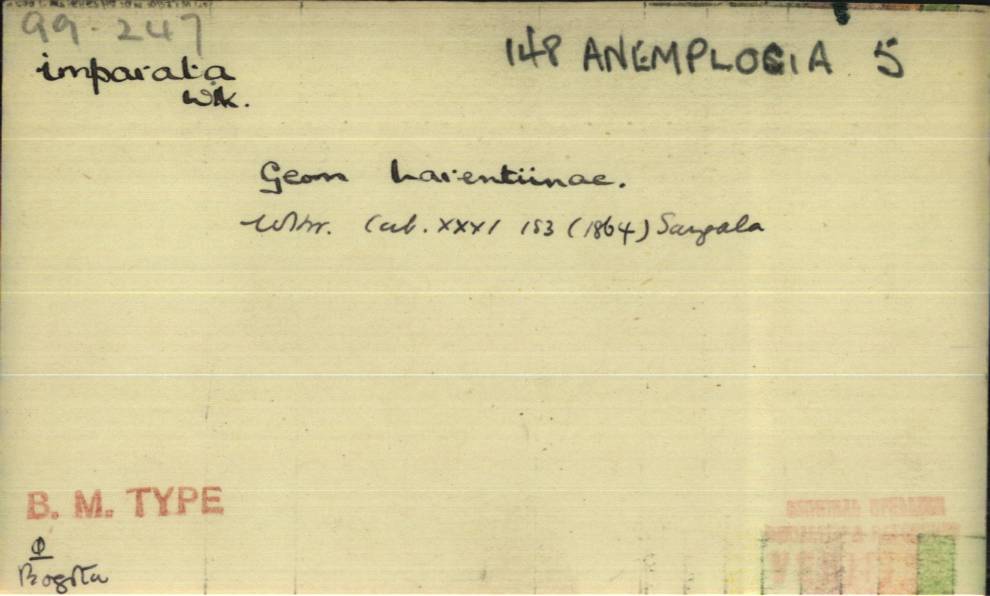 99.247
148 ANEMPLOCIA 5
imparata
Wk.
Geom Larentiinae.
Wlkr. Cat. XXXI 153 (1864) Sangala
B. M. TYPE
Bogota